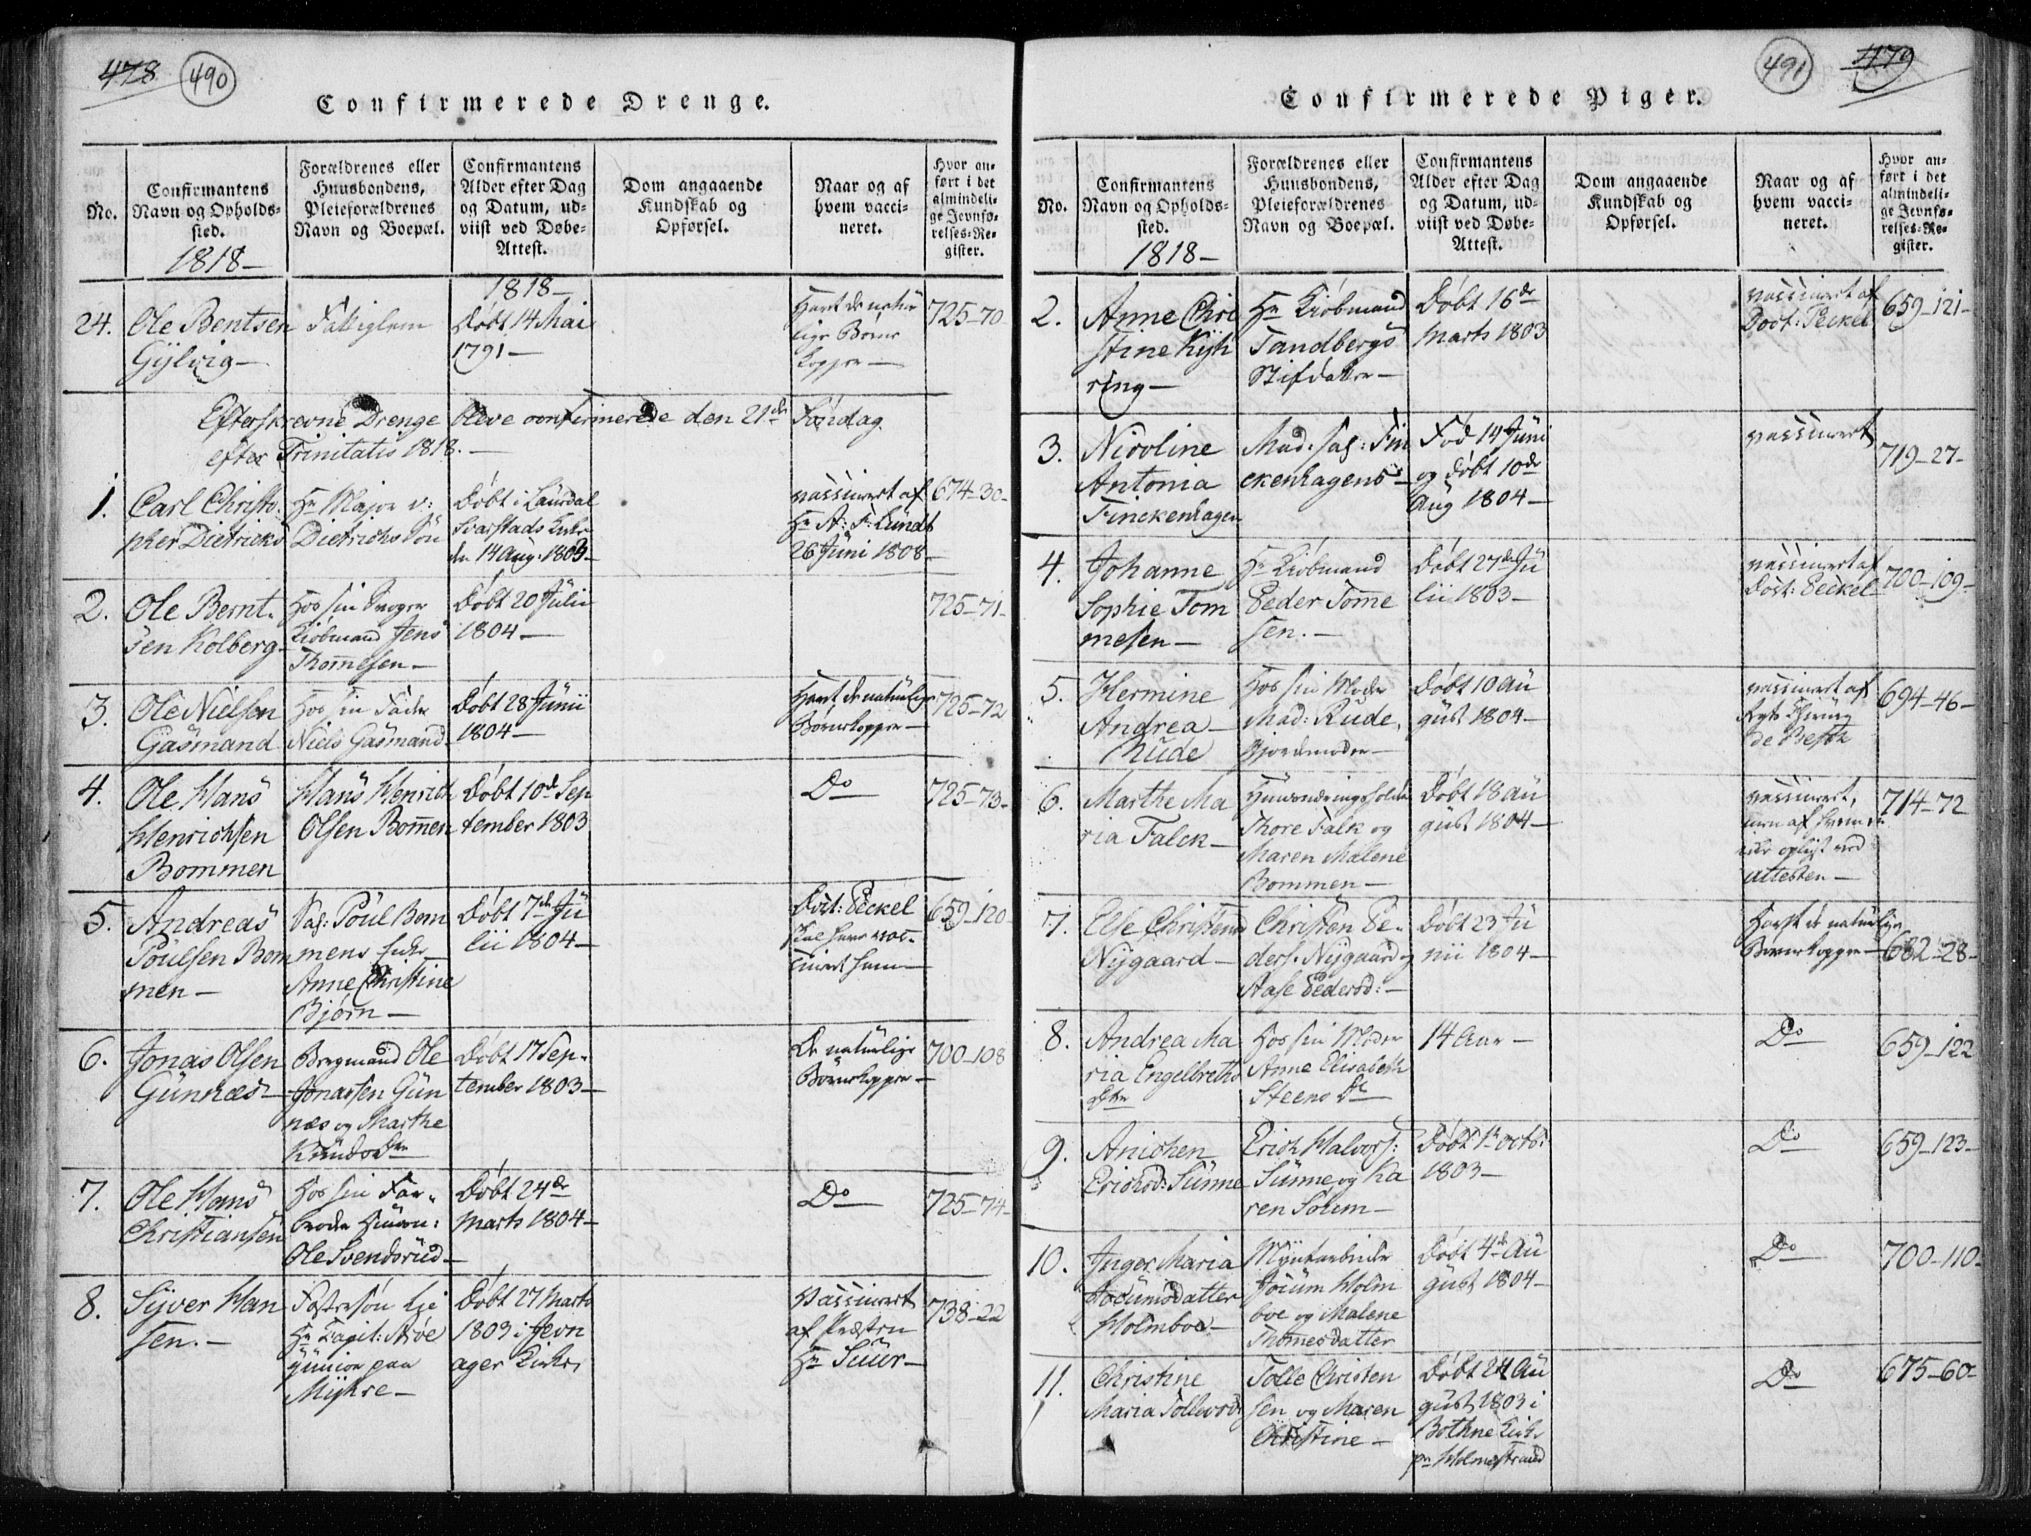 478 490
Confirmerede Drenge.
No.
Confirmantens
Navn og Opholds-
sted.
1818-
Forældrenes eller
Huusbondens,
Pleieforældrenes
Navn og Boepæl.
Confirmantens
Alder efter Dag
og Datum, ud-
viist ved Døbe-
Attest.
1818-
Dom angaaende
Kundskab og
Opførsel.
Naar og af
hvem vacci-
neret.
Hvor an-
ført i det
almindeli-
ge Jevnfø-
relses-Re-
gister.
24.
Ole Bentsen
Gÿlvig-
Fattiglem
Døbt 14 Mai
1791-
Havt de natür
lige Børne
kopper-
725-70
Efterskrevne Drenge bleve confirmerede den 21de Søndag
efter Trinitatis 1818.-
1.
Carl Christo-
pher Dietrichs
Hr Major v:
Dietrichs Søn
Døbt i Laurdal
Svarstads Kirke
dn 14 Aug. 1803-
vassineret af
Hr A: F: Lundt
26 Juni 1808-
674-30-
2.
Ole Bernt-
sen Kolberg-
Hos sin Svoger
Kiøbmand Jens
Thom̄esen-
Døbt 20 Julii
1804-
725-71-
3.
Ole Nielsen
Gasmand
Hos sin Fader
Niels Gasmand
Døbt 28 Junii
1804-
Havt de naturlige
Børnekopper-
725-72
4.
Ole Hans
Henrichsen
Bommen
Hans Henrich
Olsen Bom̄en
Døbt 10de Sep
tember 1803
Do
725-73-
5.
Andreas
Poulsen Bom
men-
Sal: Poul Bom
mens Enke
Anne Christine
Bjørn-
Døbt 7de Jü
lii 1804-
Doct: Peckel
skal have vac-
cineret ham-
659-120-
6.
Jonas Olsen
Günnæs-
Bergmand Ole
Jonassen Gün
næs og Marthe
Knudsdtr
Døbt 17 Sep-
tember 1803-
De naturlige
Børnekopper-
700-108
7.
Ole Hans
Christiansen
Hos sin Far-
broder
Ole Svendsrud-
Døbt 24de
Marts 1804-
Do
725-74-
8.
Sÿver Han
sen.-
Fostersøn hje
Hr Capit: Arøe
junior paa
Mÿhre-
Døbt 27 Marts
1803 i Jevn
ager Kirke,
Vassineret
af Præsten
Hr Suur-
738-22
491 479
Confirmerede Piger.
No.
Confirmantens
Navn og Opholds-
sted.
1818-
Forældrenes eller
Huusbondens,
Pleieforældrenes
Navn og Boepæl.
Confirmantens
Alder efter Dag
og Datum, ud-
viist ved Døbe-
Attest.
Dom angaaende
Kundskab og
Opførsel.
Naar og af
hvem vacci-
neret.
Hvor an-
ført i det
almindeli-
ge Jevnfø-
relses-Re-
gister.
2.
Anne Chri
stine Kÿh
ring-
Hr Kiøbmand
Tandbergs
Stifdatter-
Døbt 16de
Marts 1803
vassineret af
Doct: Peckel
659-121-
3.
Nicoline
Antonia
Finckenhagen
Mad: sal: Fin
ckenhagens-
Fød 14 Juni
og døbt 10de
Aug 1804-
vassineret
719-27-
4.
Johanne
Sophie Tom
mesen-
Hr Kiøbmand
Peder Tom̄e
sen.-
Døbt 27de Jü
lii 1803-
vassineret af
Doct: Peckel
700-109-
5.
Hermine
Andrea
Rude
Hos sin Moder
Mad: Rude,
Gjordemoder-
Døbt 10 Aü
gust 1804-
vassineret af
694-46-
6.
Marthe Ma
ria Falck-
Thore Falk og
Maren Malene
Bommen-
Døbt 18 Aü
gust 1804-
vassineret,
men af hvem er
ikke oplyst ved
Attesten-
714-72
7.
Else Christens
Nÿgaard-
Christen Pe-
ders. Nÿgaard og
Aase Pedersd:-
Døbt 23 Jü
nii 1804-
Havt de naturlige
Børnekopper-
682-28-
8.
Andrea Ma
ria Engelbrets
dtr
Hos sin Moder
Anne Elisabeth
Steens Dtr
14 Aar-
Do
659-122
9.
Anichen
Erichsd: Sünne
Erich Halvors:
Sünne og Ka
ren Solum-
Døbt 1te octb:
1803-
Do
659-123-
10.
Inger Maria
Jocumsdatter
Holmboe-
Mÿntarbeider
Jocum Holm
boe og Malene
Thom̄esdatter
Døbt 4de Aü
gust 1804-
Do
700-110-
11.
Christine
Maria Tollevsd
Tolle Christen
sen og Maren
Christine-
Døbt 24 Aü
gust 1803 i
Bothne Kirke
pr Holmestrand
Do
675-60-